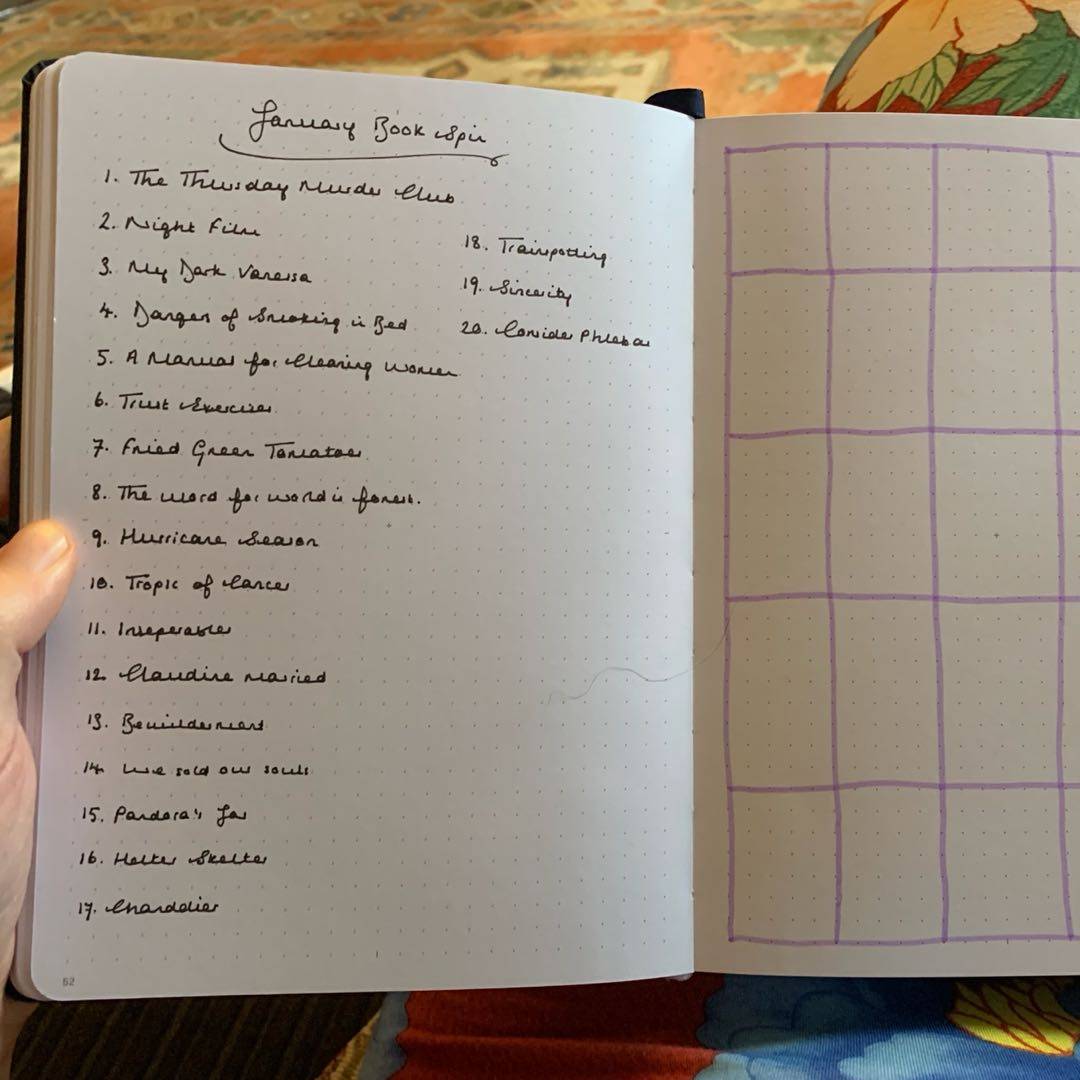 January Book Spin
1. The Thursday Murder Club
2. Night Film
3. My Dark Vanessa
4. Dangers of Smoking in Bed
5. A Manual for Cleaning Women
6. Trust Exercises
7. Fried Green Tomatoes
8. The word for world is forest.
9. Hurricane Season
10. Tropic of Cancer
11. Inseperables
12. Claudine Married
13. Bewilderment
14. We sold our souls
15. Pandora's Jar
16. Helter Skelter
17.
18. Trainspotting
19. Sincerity
20. Consider Phlebas
52